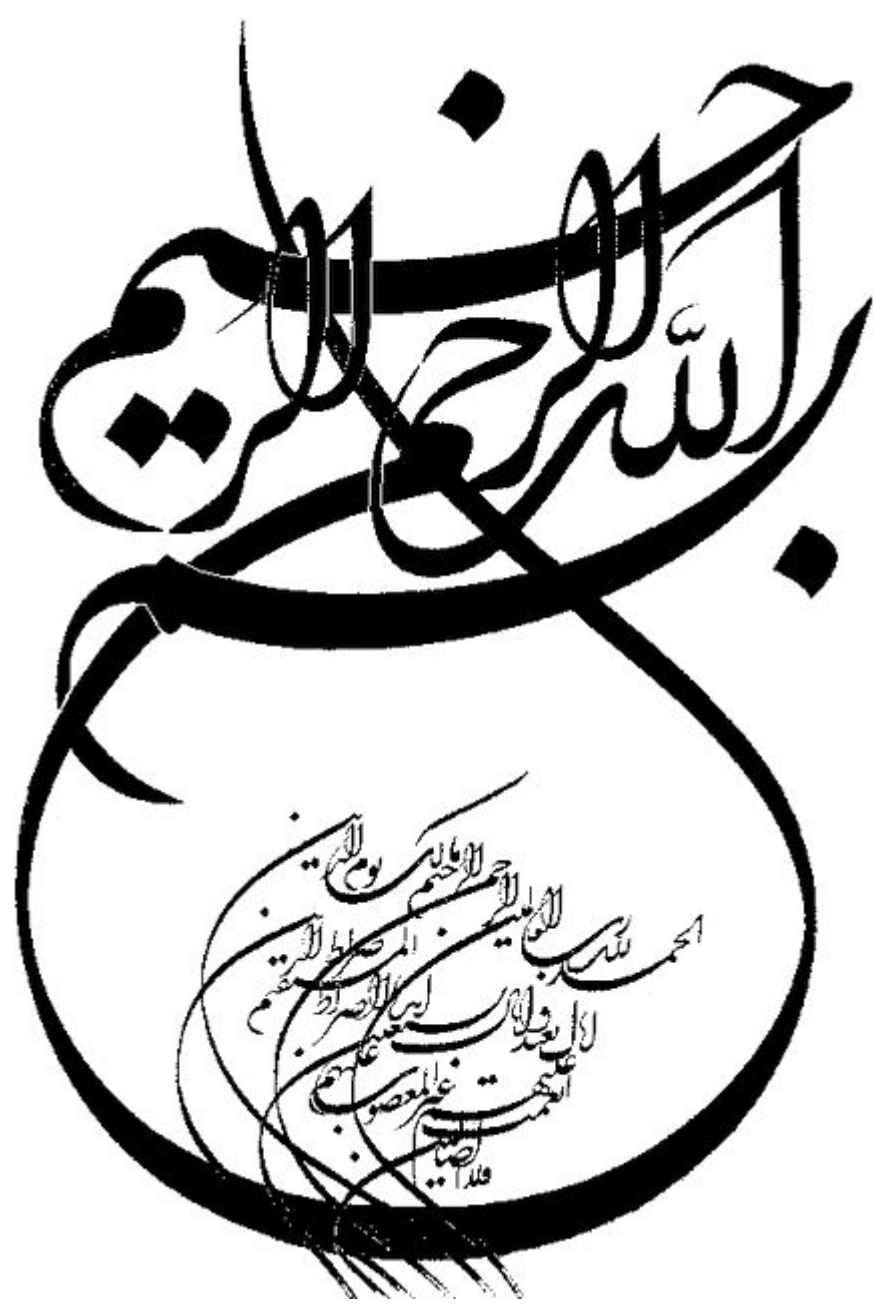 بسم
الله الرحمن الرحیم
الحمد لله رب العالمین
الرحمن الرحیم مالک یوم الدین
ایاک نعبد و ایاک نستعین
اهدنا الصراط المستقیم صراط الذین
انعمت علیهم غیر المغضوب علیهم
ولا الضالین